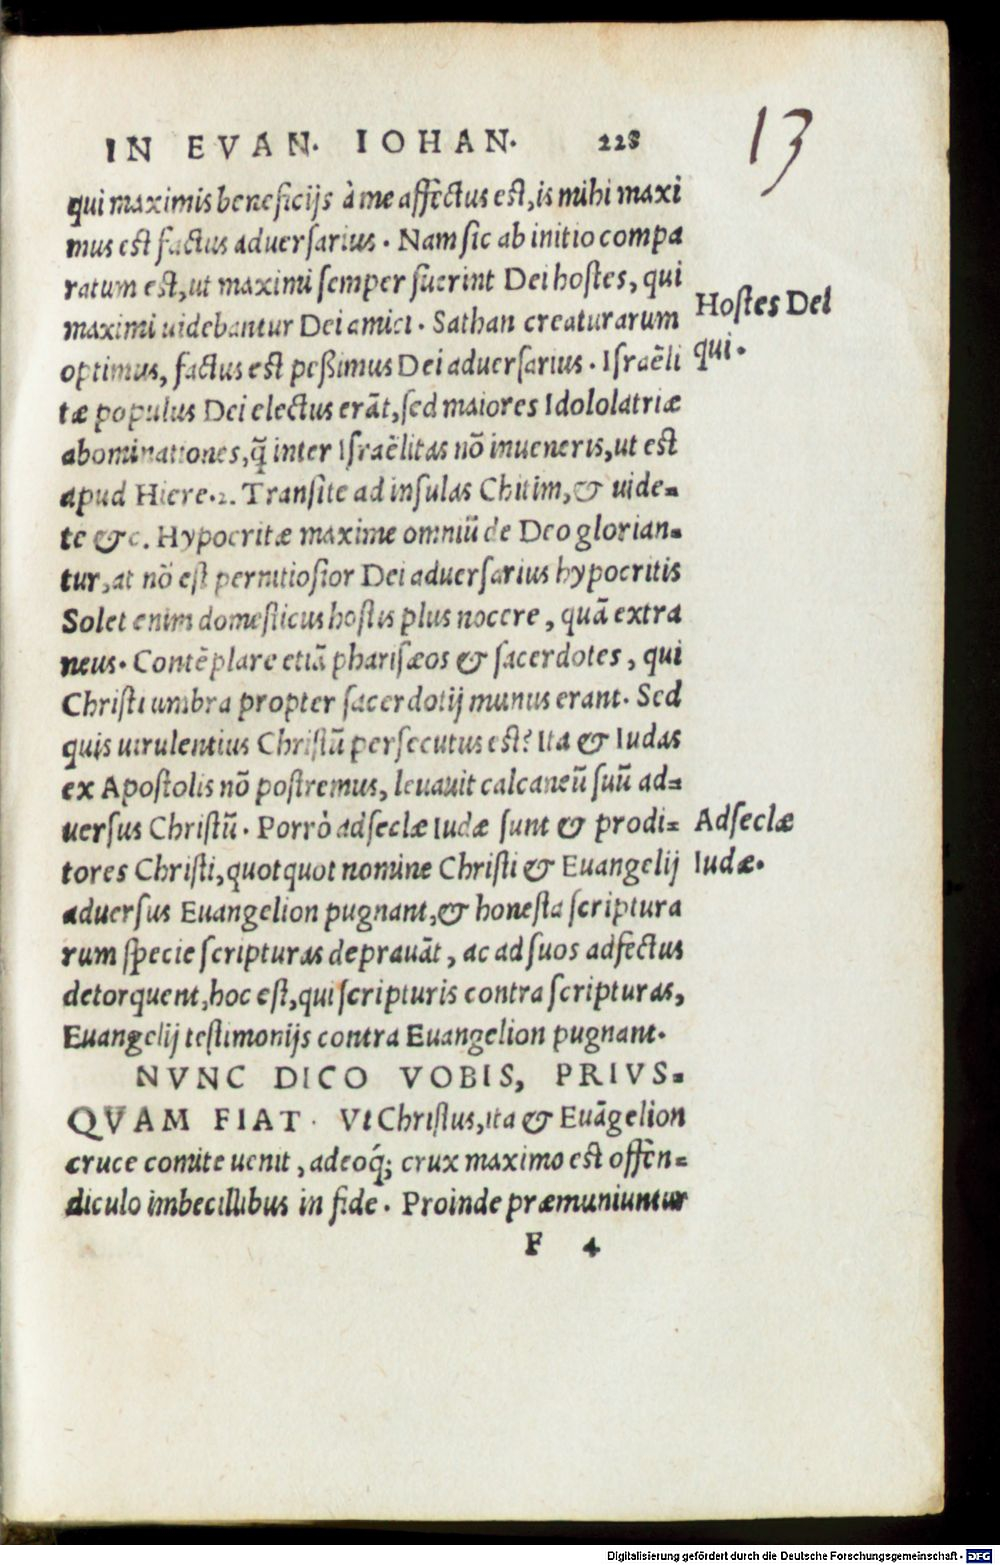 IN EVAN. IOHAN. 228
13
qui maximis beneficijs à me affectus est, is mihi maxi
mus est factus aduersarius. Nam sic ab initio compa
ratum est, ut maximi semper fuerint Dei hostes, qui
maximi uidebantur Dei amici. Sathan creaturarum
optimus, factus est peßimus Dei aduersarius. Israëli
tæ populus Dei electus erāt, sed maiores Idololatriæ
abominationes, q̃ inter Israëlitas nō inueneris, ut est
apud Hiere. 2. Transite ad insulas Chitim, & uide=
te &c. Hypocritæ maxime omniū de Deo glorian=
tur, at nō est pernitiosior Dei aduersarius hypocritis
Solet enim domesticus hostis plus nocere, quā extra
neus. Contēplare etiā pharisæos & sacerdotes, qui
Christi umbra propter sacerdotij munus erant. Sed
quis uirulentius Christū persecutus est? Ita & Iudas
ex Apostolis nō postremus, leuauit calcaneū suū ad=
uersus Christū. Porrò adseclæ Iudæ sunt & prodi=
tores Christi, quotquot nomine Christi & Euangelij
aduersus Euangelion pugnant, & honesta scriptura
rum specie scripturas deprauāt, ac ad suos adfectus
detorquent, hoc est, qui scripturis contra scripturas,
Euangelij testimonijs contra Euangelion pugnant.
NVNC DICO VOBIS, PRIVS=
QVAM FIAT. Vt Christus, ita & Euāgelion
cruce comite uenit, adeoq́; crux maximo est offen=
diculo imbecillibus in fide. Proinde præmuniuntur
F 4
Hostes Dei
qui.
Adseclæ
Iudæ.
Digitalisierung gefördert durch die Deutsche Forschungsgemeinschaft - DFG